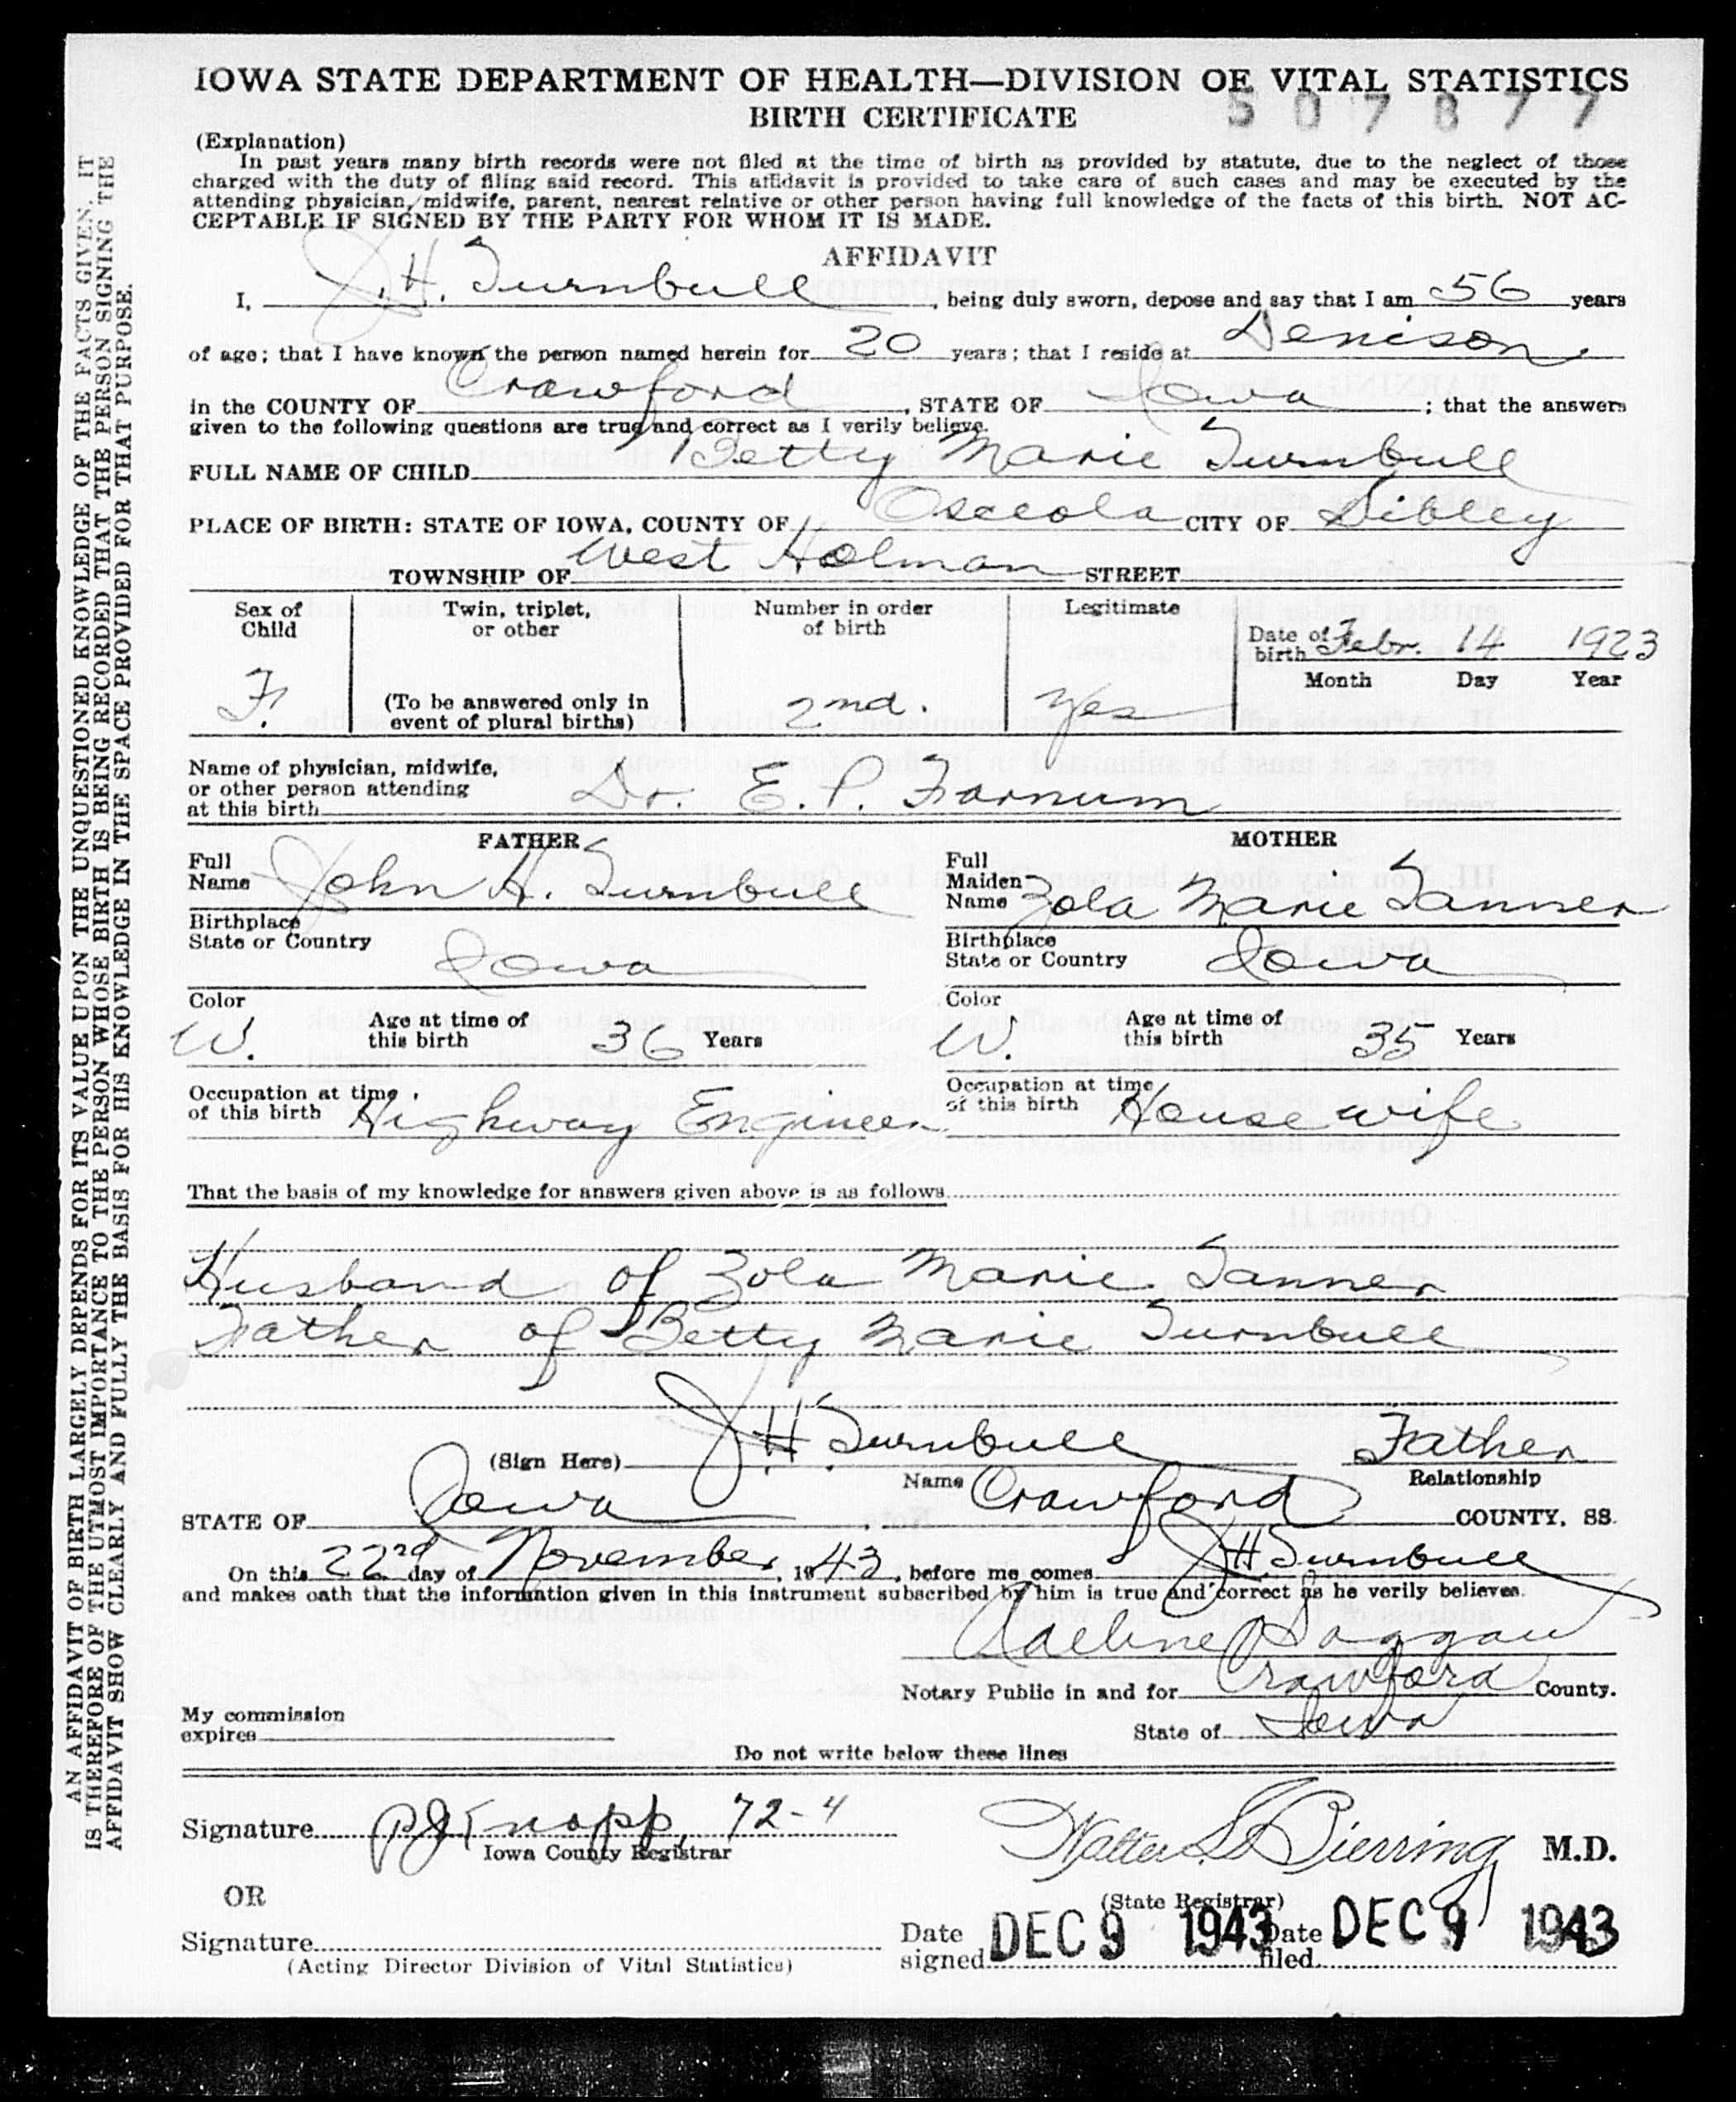 IOWA STATE DEPARTMENT OF HEALTH—DIVISION OF VITAL STATISTICS
BIRTH CERTIFICATE 507877
(Explanation)
In past years many birth records were not filed at the time of birth as provided by statute, due to the neglect of those
charged with the duty of filing said record. This affidavit is provided to take care of such cases and may be executed by the
attending physician, midwife, parent, nearest relative or other person having full knowledge of the facts of this birth. NOT AC-
CEPTABLE IF SIGNED BY THE PARTY FOR WHOM IT IS MADE.
AFFIDAVIT
I, J.H. Turnbull, being duly sworn, depose and say that I am 56 years
of age; that I have known the person named herein for 20 years; that I reside at Denison
in the COUNTY OF Crawford, STATE OF Iowa; that the answers
given to the following questions are true and correct as I verily believe.
FULL NAME OF CHILD Betty Marie Turnbull
PLACE OF BIRTH: STATE OF IOWA, COUNTY OF Osceola CITY OF Sibley
TOWNSHIP OF West Holman STREET
Sex of Child F.
Twin, triplet, or other
(To be answered only in event of plural births)
Number in order of birth 2nd.
Legitimate Yes
Date of birth Febr. 14 1923
Month Day Year
Name of physician, midwife,
or other person attending
at this birth Dr. E. P. Farnum
FATHER
Full Name John H. Turnbull
Birthplace
State or Country Iowa
Color W. Age at time of this birth 36 Years
Occupation at time of this birth Highway Engineer
MOTHER
Full Maiden Name Zola Marie Tanner
Birthplace
State or Country Iowa
Color W. Age at time of this birth 35 Years
Occupation at time of this birth Housewife
That the basis of my knowledge for answers given above is as follows
Husband of Zola Marie Tanner
Father of Betty Marie Turnbull
(Sign Here) J.H. Turnbull Father
Name Relationship
STATE OF Iowa, Crawford COUNTY, SS.
On this 22nd day of November, 1943, before me comes J H Turnbull
and makes oath that the information given in this instrument subscribed by him is true and correct as he verily believes.
Notary Public in and for Crawford County.
My commission
expires
State of Iowa
Do not write below these lines
Signature P J Knopp, 72-4
Iowa County Registrar
OR
Signature
(Acting Director Division of Vital Statistics)
Walter L Bierring M.D.
(State Registrar)
Date signed DEC 9 1943 Date filed DEC 9 1943
AN AFFIDAVIT OF BIRTH LARGELY DEPENDS FOR ITS VALUE UPON THE UNQUESTIONED KNOWLEDGE OF THE FACTS GIVEN. IT
IS THEREFORE OF THE UTMOST IMPORTANCE TO THE PERSON WHOSE BIRTH IS BEING RECORDED THAT THE PERSON SIGNING THE
AFFIDAVIT SHOW CLEARLY AND FULLY THE BASIS FOR HIS KNOWLEDGE IN THE SPACE PROVIDED FOR THAT PURPOSE.